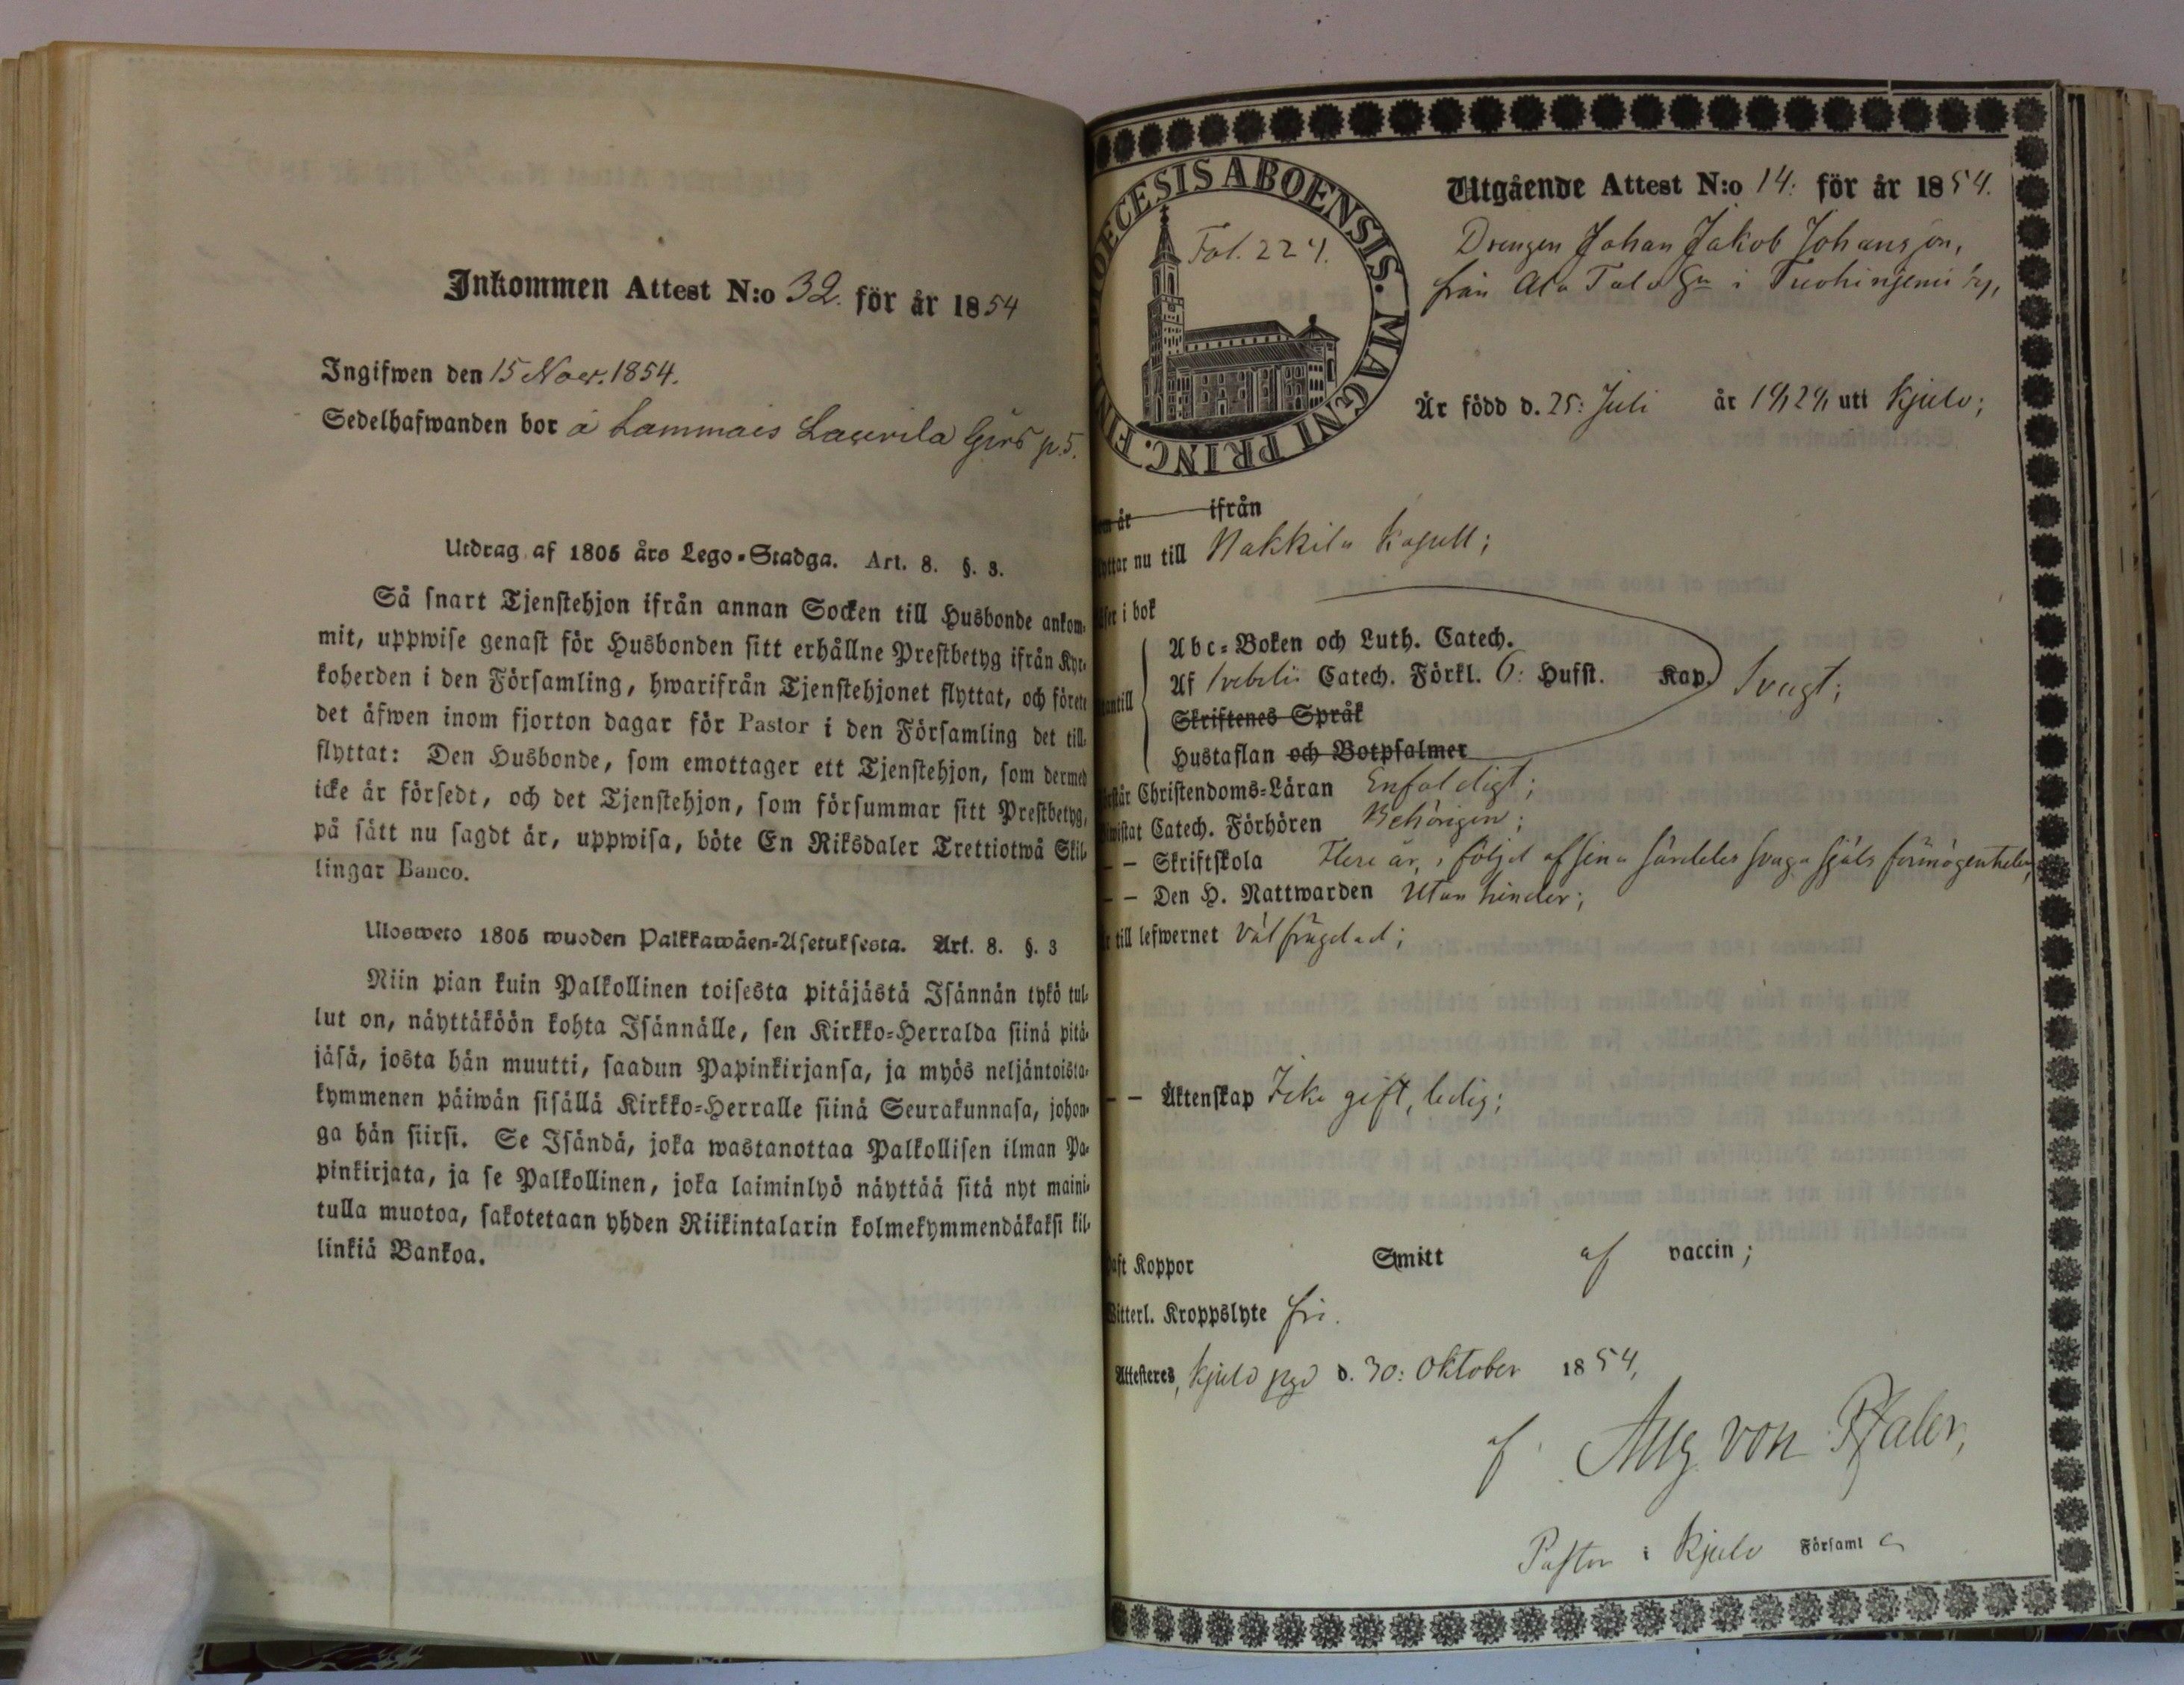 Inkommen Attest N:o 32. för år 1854
Ingifwen den 15 Nov. 1854.
Sedelhafwanden bor å Lammais Laurila Grd p.5.
Utdrag af 1805 års Lego-Stadga. Art. 8. §. 3.
Så snart Tjenstehjon ifrån annan Socken till Husbonde ankom-
mit, uppwise genast för Husbonden sitt erhållne Prestbetyg ifrån Kyr-
koherden i den Församling, hwarifrån Tjenstehjonet flyttat, och förete
det äfwen inom fjorton dagar för Pastor i den Församling det till-
flyttat: Den Husbonde, som emottager ett Tjenstehjon, som dermed
icke är försedt, och det Tjenstehjon, som försummar sitt Prestbetyg,
på sätt nu sagdt är, uppwisa, böte En Riksdaler Trettiotwå Skil-
lingar Banco.
Ulosweto 1805 wuoden Palkkawäen-Asetuksesta. Art. 8. §. 3
Niin pian kuin Palkollinen toisesta pitäjästä Isännän tykö tul-
lut on, näyttäköön kohta Isännälle, sen Kirkko-Herralda siinä pitä-
jäsä, josta hän muutti, saadun Papinkirjansa, ja myös neljäntoista-
kymmenen päiwän sisällä Kirkko-Herralle siinä Seurakunnasa, johon-
ga hän siirsi. Se Isändä, joka wastanottaa Palkollisen ilman Pa-
pinkirjata, ja se Palkollinen, joka laiminlyö näyttää sitä nyt maini-
tulla muotoa, sakotetaan yhden Riikintalarin kolmekymmendäkaksi kil-
linkiä Bankoa.
DIOECESIS ABOENSIS. MAGNI PRINC. FIN
Fol. 224.
Utgående Attest N:o 14: för år 1854.
Drengen Johan Jakob Johansson,
från Ala Talo Gn i by,
Är född d. 25: Juli år 1824 uti Kjulo;
år ifrån
nu till Nakkila Kapell;
i bok
Abc-Boken och Luth. Catech.
Af Svebelii Catech. Förkl. 6: Hufst. Kap. Svagt;
Skriftenes Språk
Hustaflan och Botpsalmer
Christendoms-Läran Enfaldigt;
Catech. Förhören Behörigen;
– – Skriftskola Flere år, i följd af sina särdeles svaga själs förmögenheter,
– – Den H. Nattwarden Utan hinder;
till lefwernet Välfrägdad;
– – Äktenskap Icke gift, ledig;
Koppor Smitt af vaccin;
Witterl. Kroppslyte fri.
Attesteres, Kjulo pgd d. 30: Oktober 1854,
af Aug von Pfaler,
Pastor i Kjulo Församl